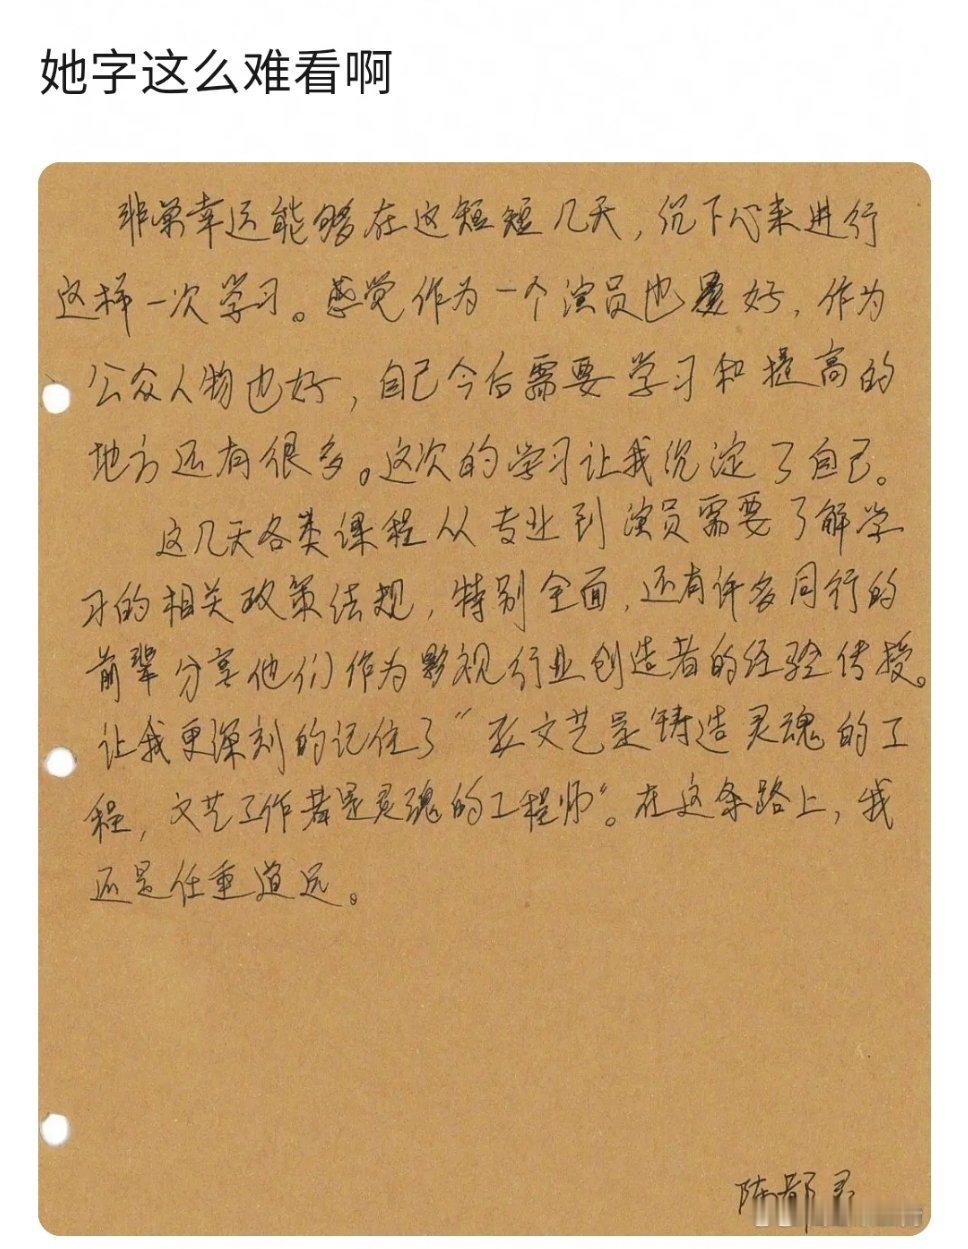 她字这么难看啊
非常幸运能够在这短短几天，沉下心来进行
这样一次学习。感觉作为一个演员也是好，作为
公众人物也好，自己今后需要学习和提高的
地方还有很多。这次的学习让我沉淀了自己。
这几天各类课程从专业到演员需要了解学
习的相关政策法规，特别全面，还有许多同行的
前辈分享他们作为影视行业创造者的经验传授。
让我更深刻的记住了“文艺是铸造灵魂的工
程，文艺工作者是灵魂的工程师”。在这条路上，我
还是任重道远。
陈都灵